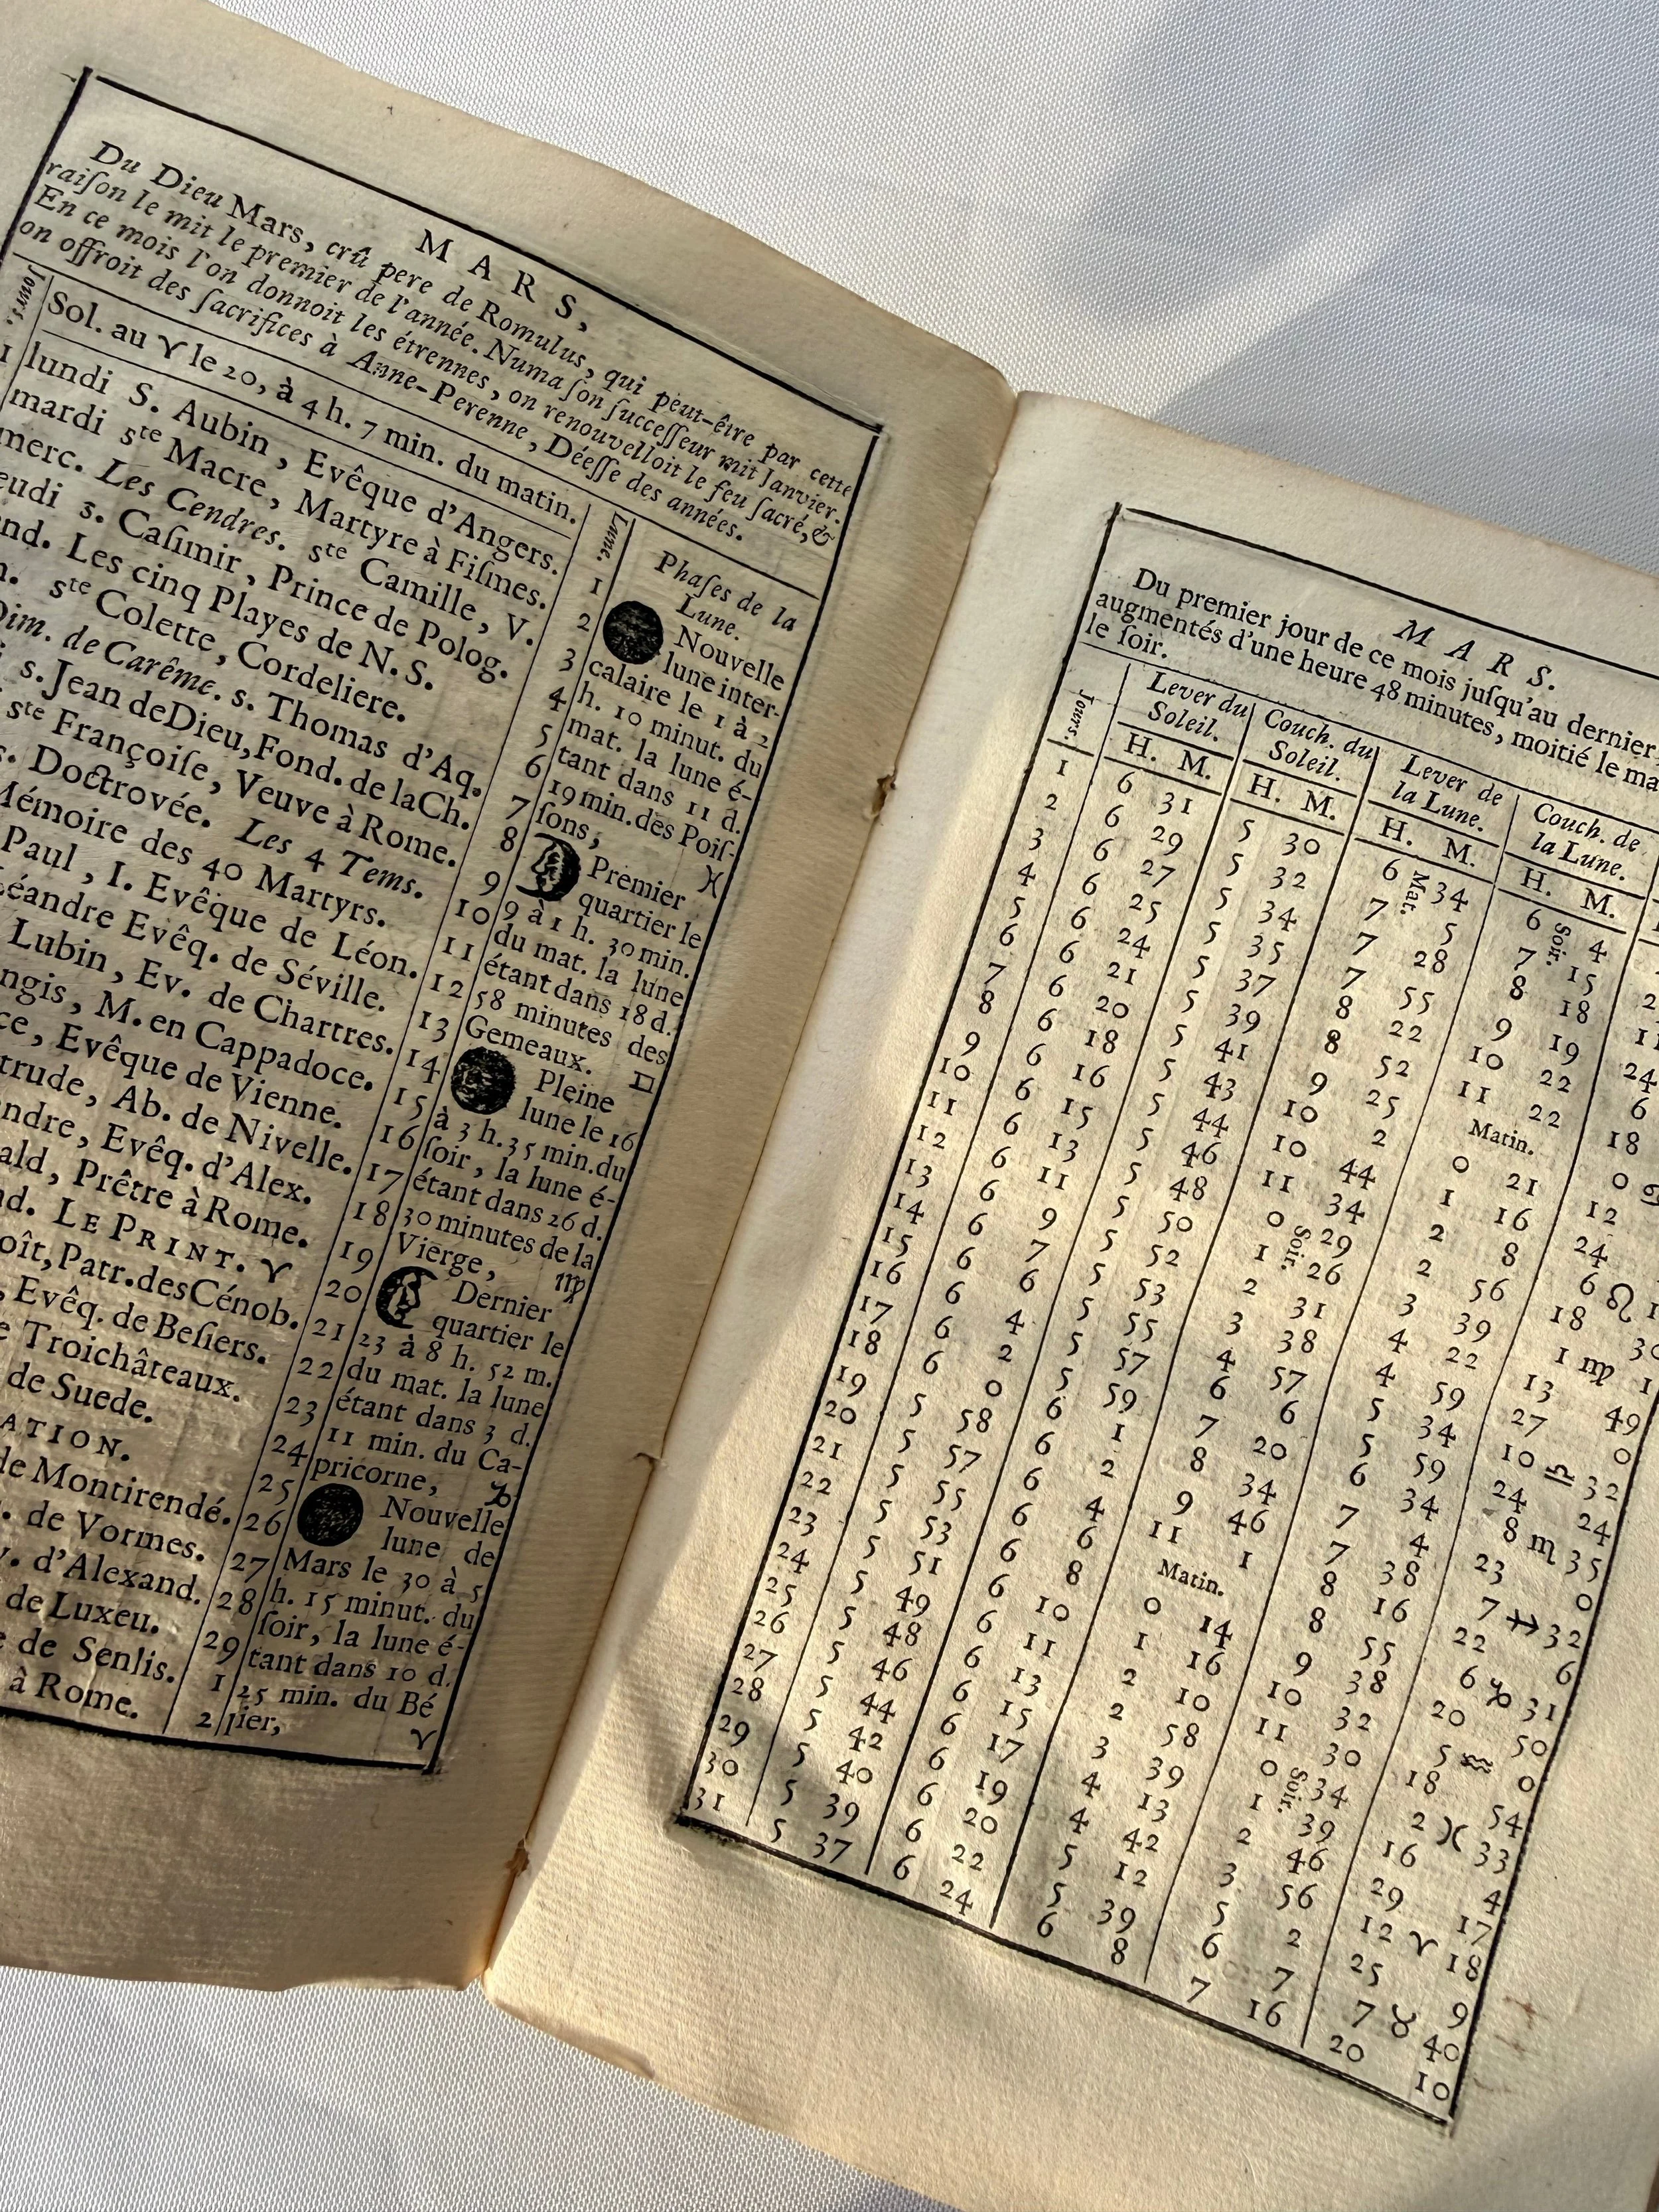 MARS,
Du Dieu Mars, crû pere de Romulus, qui peut-être par cette
raiſon le mit le premier de l'année. Numa ſon ſucceſſeur mit Janvier.
En ce mois l'on donnoit les étrennes, on renouvelloit le feu ſacré, &
on offroit des ſacrifices à Anne-Perenne, Déeſſe des années.
Jours.
Sol. au ♈ le 20, à 4 h. 7 min. du matin.
Lune.
1 lundi S. Aubin, Evêque d'Angers. 1
mardi ste Macre, Martyre à Fiſmes. 2
merc. Les Cendres. ste Camille, V. 3
eudi s. Caſimir, Prince de Polog. 4
nd. Les cinq Playes de N. S. 5
ste Colette, Cordeliere. 6
Dim. de Carême. s. Thomas d'Aq. 7
s. Jean deDieu, Fond. de laCh. 8
ste Françoiſe, Veuve à Rome. 9
s. Doctrovée. Les 4 Tems. 10
Mémoire des 40 Martyrs. 11
Paul, I. Evêque de Léon. 12
Léandre Evêq. de Séville. 13
Lubin, Ev. de Chartres. 14
ngis, M. en Cappadoce. 15
ce, Evêque de Vienne. 16
trude, Ab. de Nivelle. 17
ndre, Evêq. d'Alex. 18
ald, Prêtre à Rome. 19
nd. LE PRINT. ♈ 20
oît, Patr. des Cénob. 21
, Evêq. de Beſiers. 22
e Troichâteaux. 23
de Suede. 24
ATION. 25
de Montirendé. 26
. de Vormes. 27
v. d'Alexand. 28
de Luxeu. 29
e de Senlis. 1
à Rome. 2
Phaſes de la
Lune.
Nouvelle
lune inter-
calaire le 1 à 2
h. 10 minut. du
mat. la lune é-
tant dans 11 d.
19 min. des Poiſ-
ſons, ♓
Premier
quartier le
9 à 1 h. 30 min.
du mat. la lune
étant dans 18 d.
58 minutes des
Gemeaux. ♊
Pleine
lune le 16
à 3 h. 35 min. du
ſoir, la lune é-
tant dans 26 d.
30 minutes de la
Vierge, ♍
Dernier
quartier le
23 à 8 h. 52 m.
du mat. la lune
étant dans 3 d.
11 min. du Ca-
pricorne, ♑
Nouvelle
lune de
Mars le 30 à 5
h. 15 minut. du
ſoir, la lune é-
tant dans 10 d.
25 min. du Bé
lier, ♈
MARS.
Du premier jour de ce mois juſqu'au dernier,
augmentés d'une heure 48 minutes, moitié le ma
le ſoir.
Jours. Lever du Soleil. Couch. du Soleil. Lever de la Lune. Couch. de la Lune.
H. M. H. M. H. M. H. M.
1 6 31 5 30 6 Mat. 34 6 Soir. 4
2 6 29 5 32 7 5 7 15 2
3 6 27 5 34 7 28 8 18 11
4 6 25 5 35 7 55 9 19 24
5 6 24 5 37 8 22 10 22 6
6 6 21 5 39 8 52 11 22 18
7 6 20 5 41 9 25 Matin. 0 ♋
8 6 18 5 43 10 2 0 21 12
9 6 16 5 44 10 44 1 16 24
10 6 15 5 46 11 34 2 8 6 ♌ 1
11 6 13 5 48 0 Soir. 29 2 56 18 30
12 6 11 5 50 1 26 3 39 1 ♍ 1
13 6 9 5 52 2 31 4 22 13 49
14 6 7 5 53 3 38 4 59 27 0
15 6 6 5 55 4 57 5 34 10 ♎ 32
16 6 4 5 57 6 6 5 59 24 24
17 6 2 5 59 7 20 6 34 8 ♏ 35
18 6 0 6 1 8 34 7 4 23 0
19 5 58 6 2 9 46 7 38 7 ♐ 32
20 5 57 6 4 11 1 8 16 22 6
21 5 55 6 6 Matin. 8 55 6 ♑ 31
22 5 53 6 8 0 14 9 38 20 50
23 5 51 6 10 1 16 10 32 5 ♒ 0
24 5 49 6 11 2 10 11 30 18 54
25 5 48 6 13 2 58 0 Soir. 34 2 ♓ 33
26 5 46 6 15 3 39 1 39 16 4
27 5 44 6 17 4 13 2 46 29 17
28 5 42 6 19 4 42 3 56 12 ♈ 18
29 5 40 6 20 5 12 5 2 25 9
30 5 39 6 22 5 39 6 7 7 ♉ 40
31 5 37 6 24 6 8 7 16 20 10